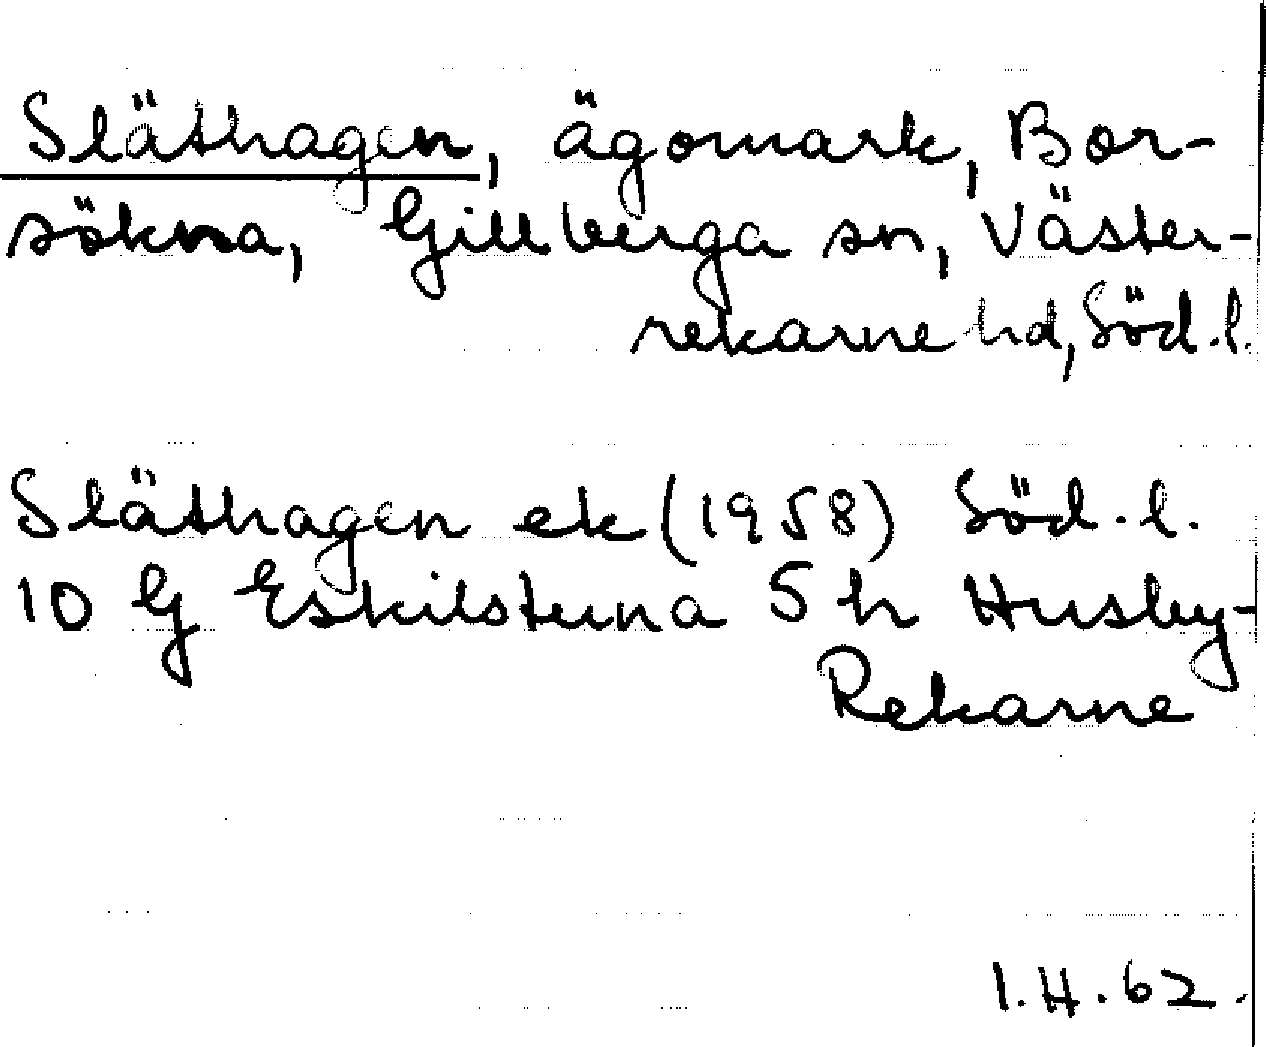 Släthagen, ägomark, Bor-
sökna, Gillberga sn, Väster-
rekarne hd, Söd.l.
Släthagen ek (1958) Söd.l.
10 G Eskilstuna 5 h Husby-
Rekarne
I.H.62.